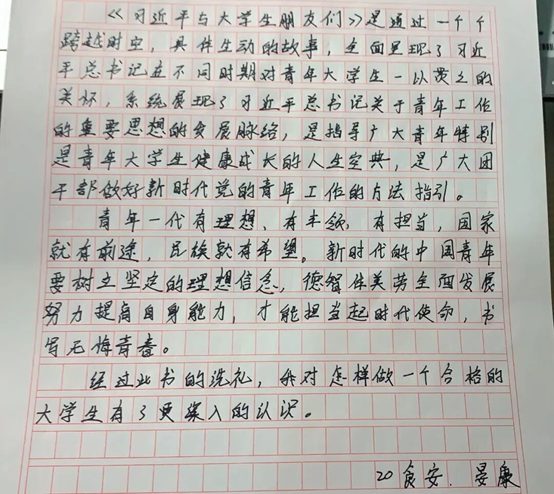 《习近平与大学生朋友们》是通过一个个
跨越时空，具体生动的故事，全面呈现了习近
平总书记在不同时期对青年大学生一以贯之的
关怀，系统展现了习近平总书记关于青年工作
的重要思想的发展脉络，是指导广大青年特别
是青年大学生健康成长的人生宝典，是广大团
干部做好新时代党的青年工作的方法指引。
青年一代有理想，有本领，有担当，国家
就有前途，民族就有希望。新时代的中国青年
要树立坚定的理想信念，德智体美劳全面发展
努力提高自身能力，才能担当起时代使命，书
写无悔青春。
经过此书的洗礼，我对怎样做一个合格的
大学生有了更深入的认识。
20食安．晏康